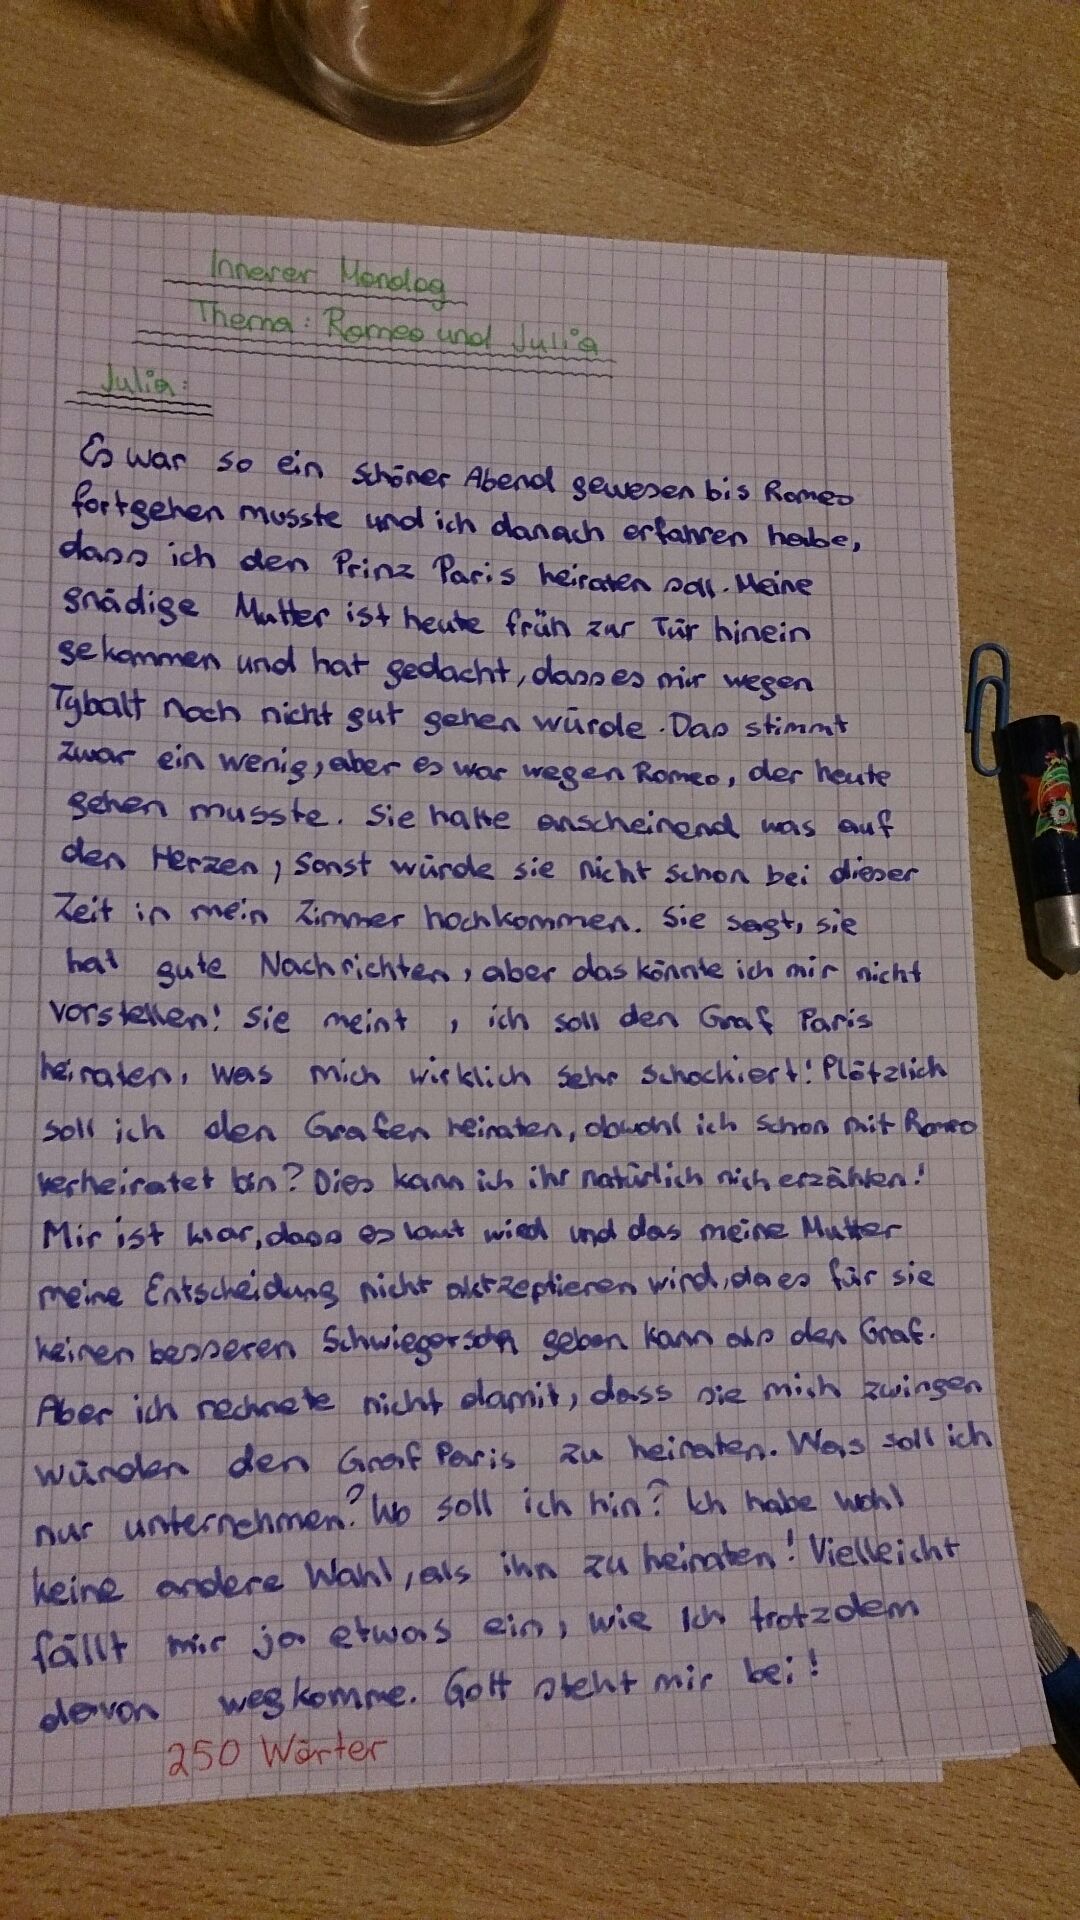 Innerer Monolog
Thema: Romeo und Julia
Julia:
Es war so ein schöner Abend gewesen bis Romeo
fortgehen musste und ich danach erfahren habe,
dass ich den Prinz Paris heiraten soll. Meine
gnädige Mutter ist heute früh zur Tür hinein
gekommen und hat gedacht, dass es mir wegen
Tybalt noch nicht gut gehen würde. Das stimmt
zwar ein wenig, aber es war wegen Romeo, der heute
gehen musste. Sie hatte anscheinend was auf
den Herzen, sonst würde sie nicht schon bei dieser
Zeit in mein Zimmer hochkommen. Sie sagt, sie
hat gute Nachrichten, aber das könnte ich mir nicht
vorstellen! Sie meint, ich soll den Graf Paris
heiraten, was mich wirklich sehr schockiert! Plötzlich
soll ich den Grafen heiraten, obwohl ich schon mit Romeo
verheiratet bin? Dies kann ich ihr natürlich nich erzählen!
Mir ist klar, dass es laut wird und das meine Mutter
meine Entscheidung nicht aktzeptieren wird, da es für sie
keinen besseren Schwiegersohn geben kann als den Graf.
Aber ich rechnete nicht damit, dass sie mich zwingen
würden den Graf Paris zu heiraten. Was soll ich
nur unternehmen? Wo soll ich hin? Ich habe wohl
keine andere Wahl, als ihn zu heiraten! Vielleicht
fällt mir ja etwas ein, wie ich trotzdem
davon wegkomme. Gott steht mir bei!
250 Wörter